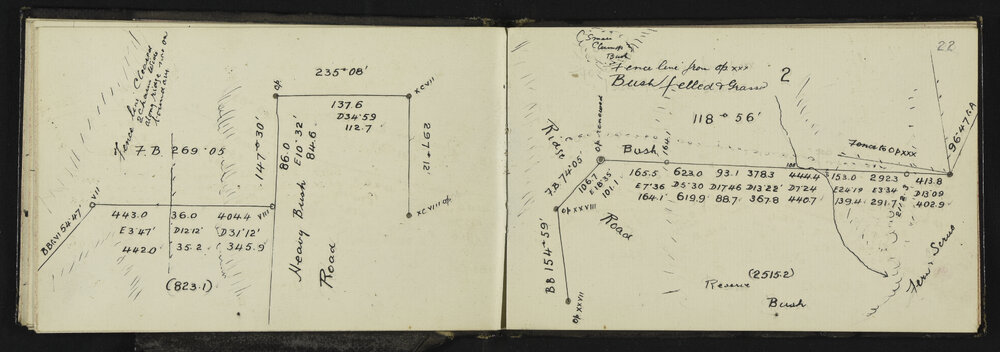 Fence line Cleared
2 Chains wide
along ridge
boundary
F.B. 269° 05
VII
BB XVI 54°47'
443.0 36.0 404.4 VIII
E3°47' D12°12' D31°12'
442.0 35.2 345.9
(823.1)
147° 30'
op
235° 08'
86.0
E10°32'
84.6
Heavy Bush
Road
137.6
D34°59
112.7
XCVII
297° 12'
XCVIII op
22
Small
Clump
Bush
Fence line from op XXX
Bush felled & Grass
2
118° 56'
Ridge
F.B. 74°05'
op renewed
106.7
E18°35'
101.1
op XXVIII
Road
BB 154° 59'
op XXVII
Bush
164.1
165.5 623.0 93.1 378.3 444.4 153.0 292.3 413.8
E7°36 D5°30 D17°46 D13°22' D7°24 E24°19 E3°34 D13°09
164.1 619.9 88.7 367.8 440.7 139.4 291.7 402.9
Fence to op XXX
(2515.2)
Reserve
Bush
Fern & Scrub